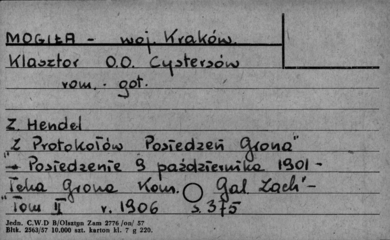 MOGIŁA - woj. Kraków.
Klasztor O.O. Cystersów
rom. - got.
Z. Hendel
"Z Protokołów Posiedzeń Grona"
- Posiedzenie 9 października 1901 -
Teka Grona Kons. Gal. Zach" -
"Tom II r. 1906 s. 375
Jedn. C.W.D B/Olsztyn Zam 2776 /on/ 57
Błhk. 2563/57 10.000 szt. karton kl. 7 g 220.